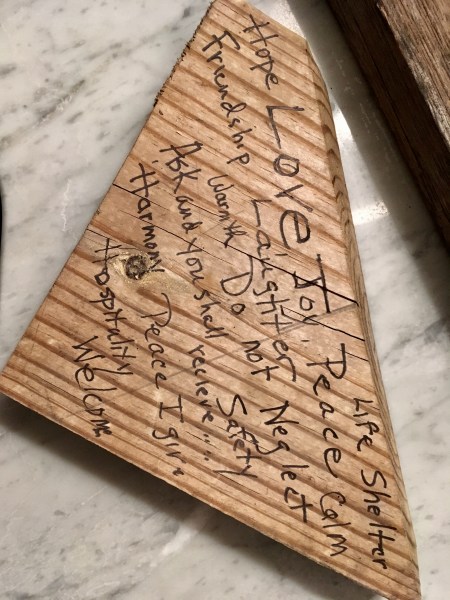 Life Shelter
Hope Love Joy Peace Calm
Friendship Laughter
Warmth Do not Neglect
Safety
Ask and You shall recieve"...
Harmony Peace I give
Hospitality
Welcome